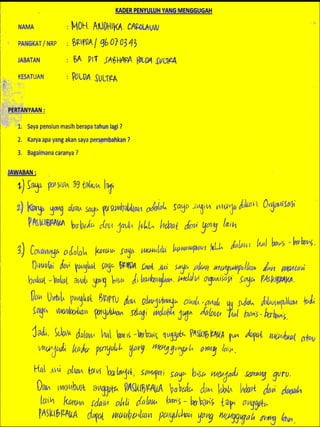 KADER PENYULUH YANG MENGGUGAH
NAMA : MOH. ANDHIKA CAROLAUW
PANGKAT / NRP : BRIPDA / 96 07 0343
JABATAN : BA DIT SABHARA POLDA SULTRA
KESATUAN : POLDA SULTRA
PERTANYAAN :
1. Saya pensiun masih berapa tahun lagi ?
2. Karya apa yang akan saya persembahkan ?
3. Bagaimana caranya ?
JAWABAN :
1) Saya pensiun 39 tahun lagi
2) Karya yang akan saya persembahkan adalah saya ingin menjadikan Organisasi
PASKIBRAKA berbeda dan jauh lebih hebat dari yang lain
3) Caranya adalah karena saya memiliki kemampuan lebih dalam hal baris - berbaris.
Dimulai dari pangkat saya BRIPDA saat ini saya akan mengumpulkan dan mencari
bakat - bakat anak yang bisa di kembangkan melalui organisasi saya PASKIBRAKA.
Dan Untuk pangkat BRIPTU dan selanjutnya anak-anak yg sudah dikumpulkan tadi
saya memberikan penyuluhan selagi melatih juga dalam hal baris - berbaris.
Jadi, Selain dalam hal baris - berbaris anggota PASKIBRAKA pun dapat membuat atau
menjadi kader penyuluh yang menggugah orang lain.
Hal ini akan terus berlanjut, sampai saya bisa menjadi seorang guru.
Dan membuat anggota PASKIBRAKA berbeda dan lebih hebat dari daerah
lain karena selain ahli dalam baris - berbaris tapi anggota
PASKIBRAKA dapat memberikan penyuluhan yang menggugah orang lain.